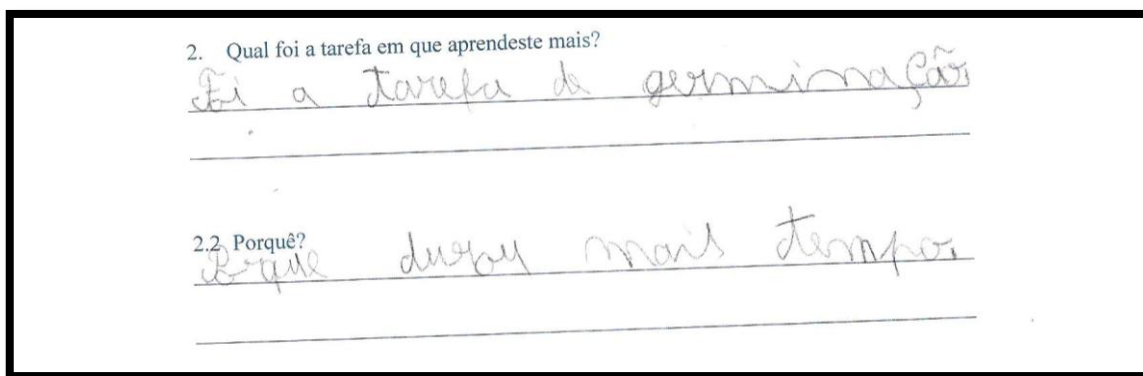 2. Qual foi a tarefa em que aprendeste mais?
Foi a tarefa de germinação
2.2 Porquê?
Porque durou mais tempo